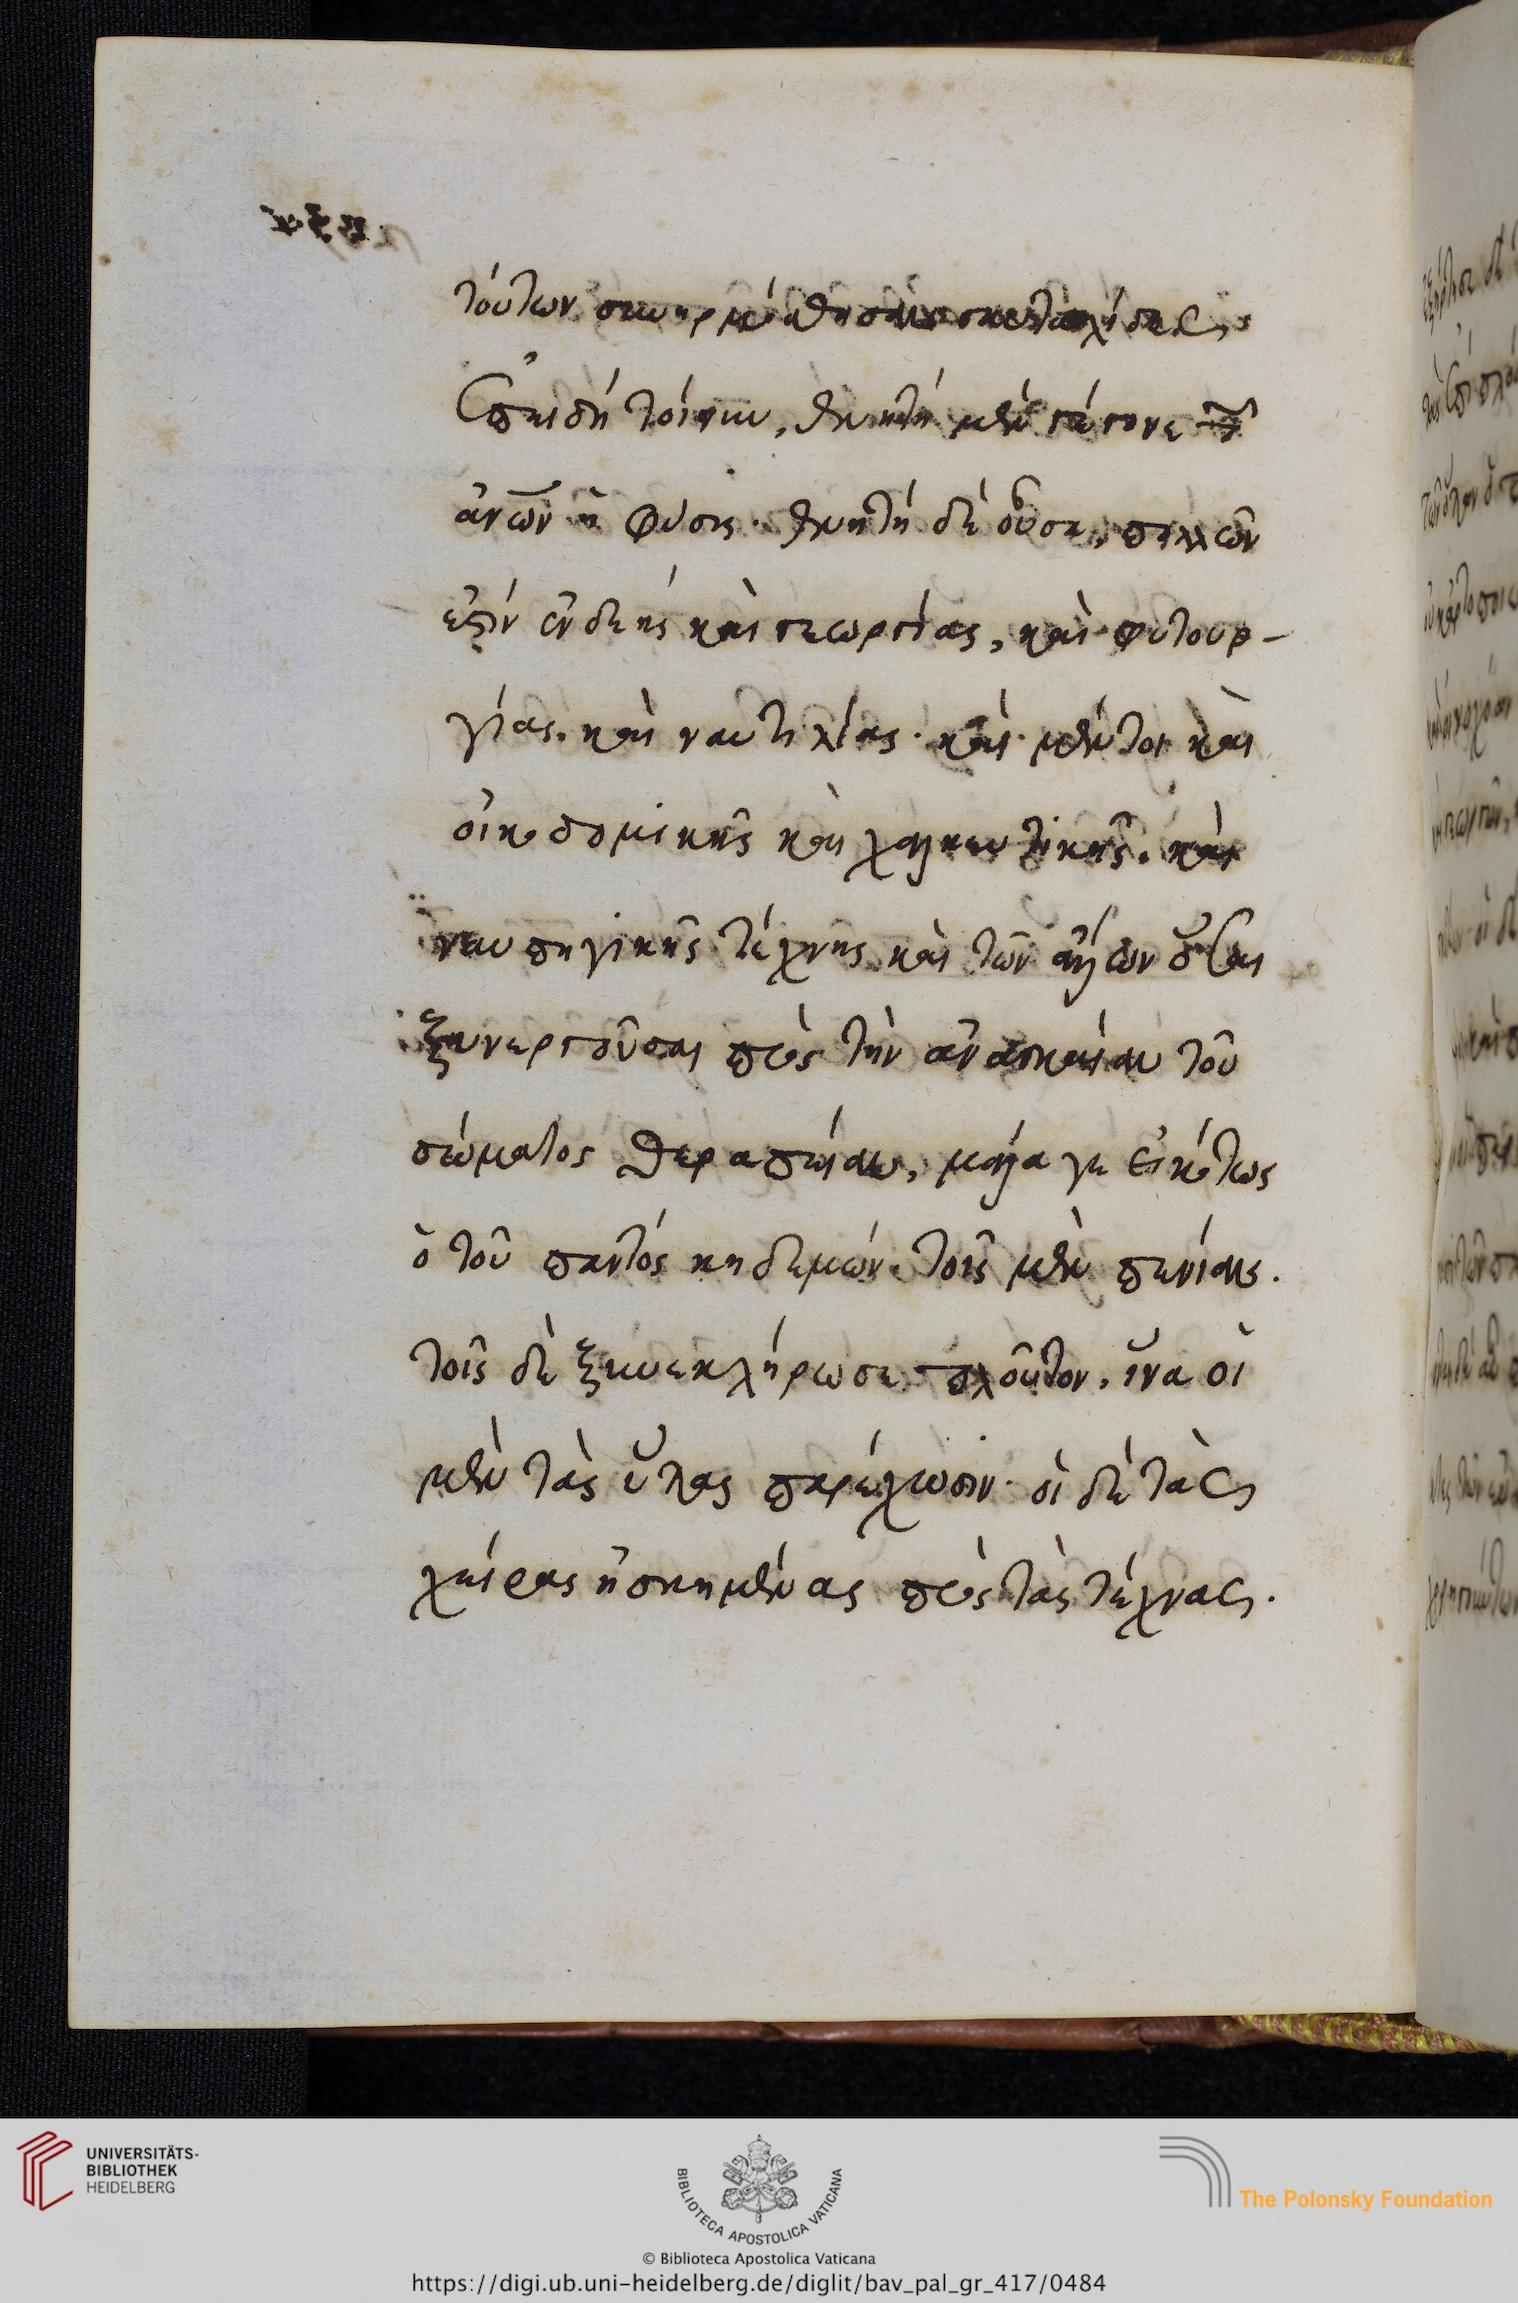 τούτων συναρμοσθήσαις
Ἐπειδὴ τοίνυν, θνητὴ μὲν γέγονε τῶν
ἀνων ἡ φύσις· θνητὴ δὲ οὖσα, πολλῶν
ἐστὶν ἐνδεὴς καὶ γεωργίας, καὶ φυτουρ-
γίας. καὶ ναυτιλίας· καὶ μέντοι καὶ
οἰκοδομικῆς καὶ χαλκευτικῆς. καὶ
ναυπηγικῆς τέχνης καὶ τῶν ἄλλων ὅσαι
ξυνεργοῦσαι πρὸς τὴν ἀναγκαίαν τοῦ
σώματος θεραπείαν, μάλα γε εἰκότως
ὁ τοῦ παντὸς κηδεμών. τοῖς μὲν πενίαν.
τοῖς δὲ ξυνεκλήρωσε πλοῦτον, ἵνα οἱ
μὲν τὰς ὕλας παρέχωσιν· οἱ δὲ τὰς
χεῖρας ἠσκημένας πρὸς τὰς τέχνας.
UNIVERSITÄTS-
BIBLIOTHEK
HEIDELBERG
BIBLIOTECA APOSTOLICA VATICANA
The Polonsky Foundation
© Biblioteca Apostolica Vaticana
https://digi.ub.uni-heidelberg.de/diglit/bav_pal_gr_417/0484